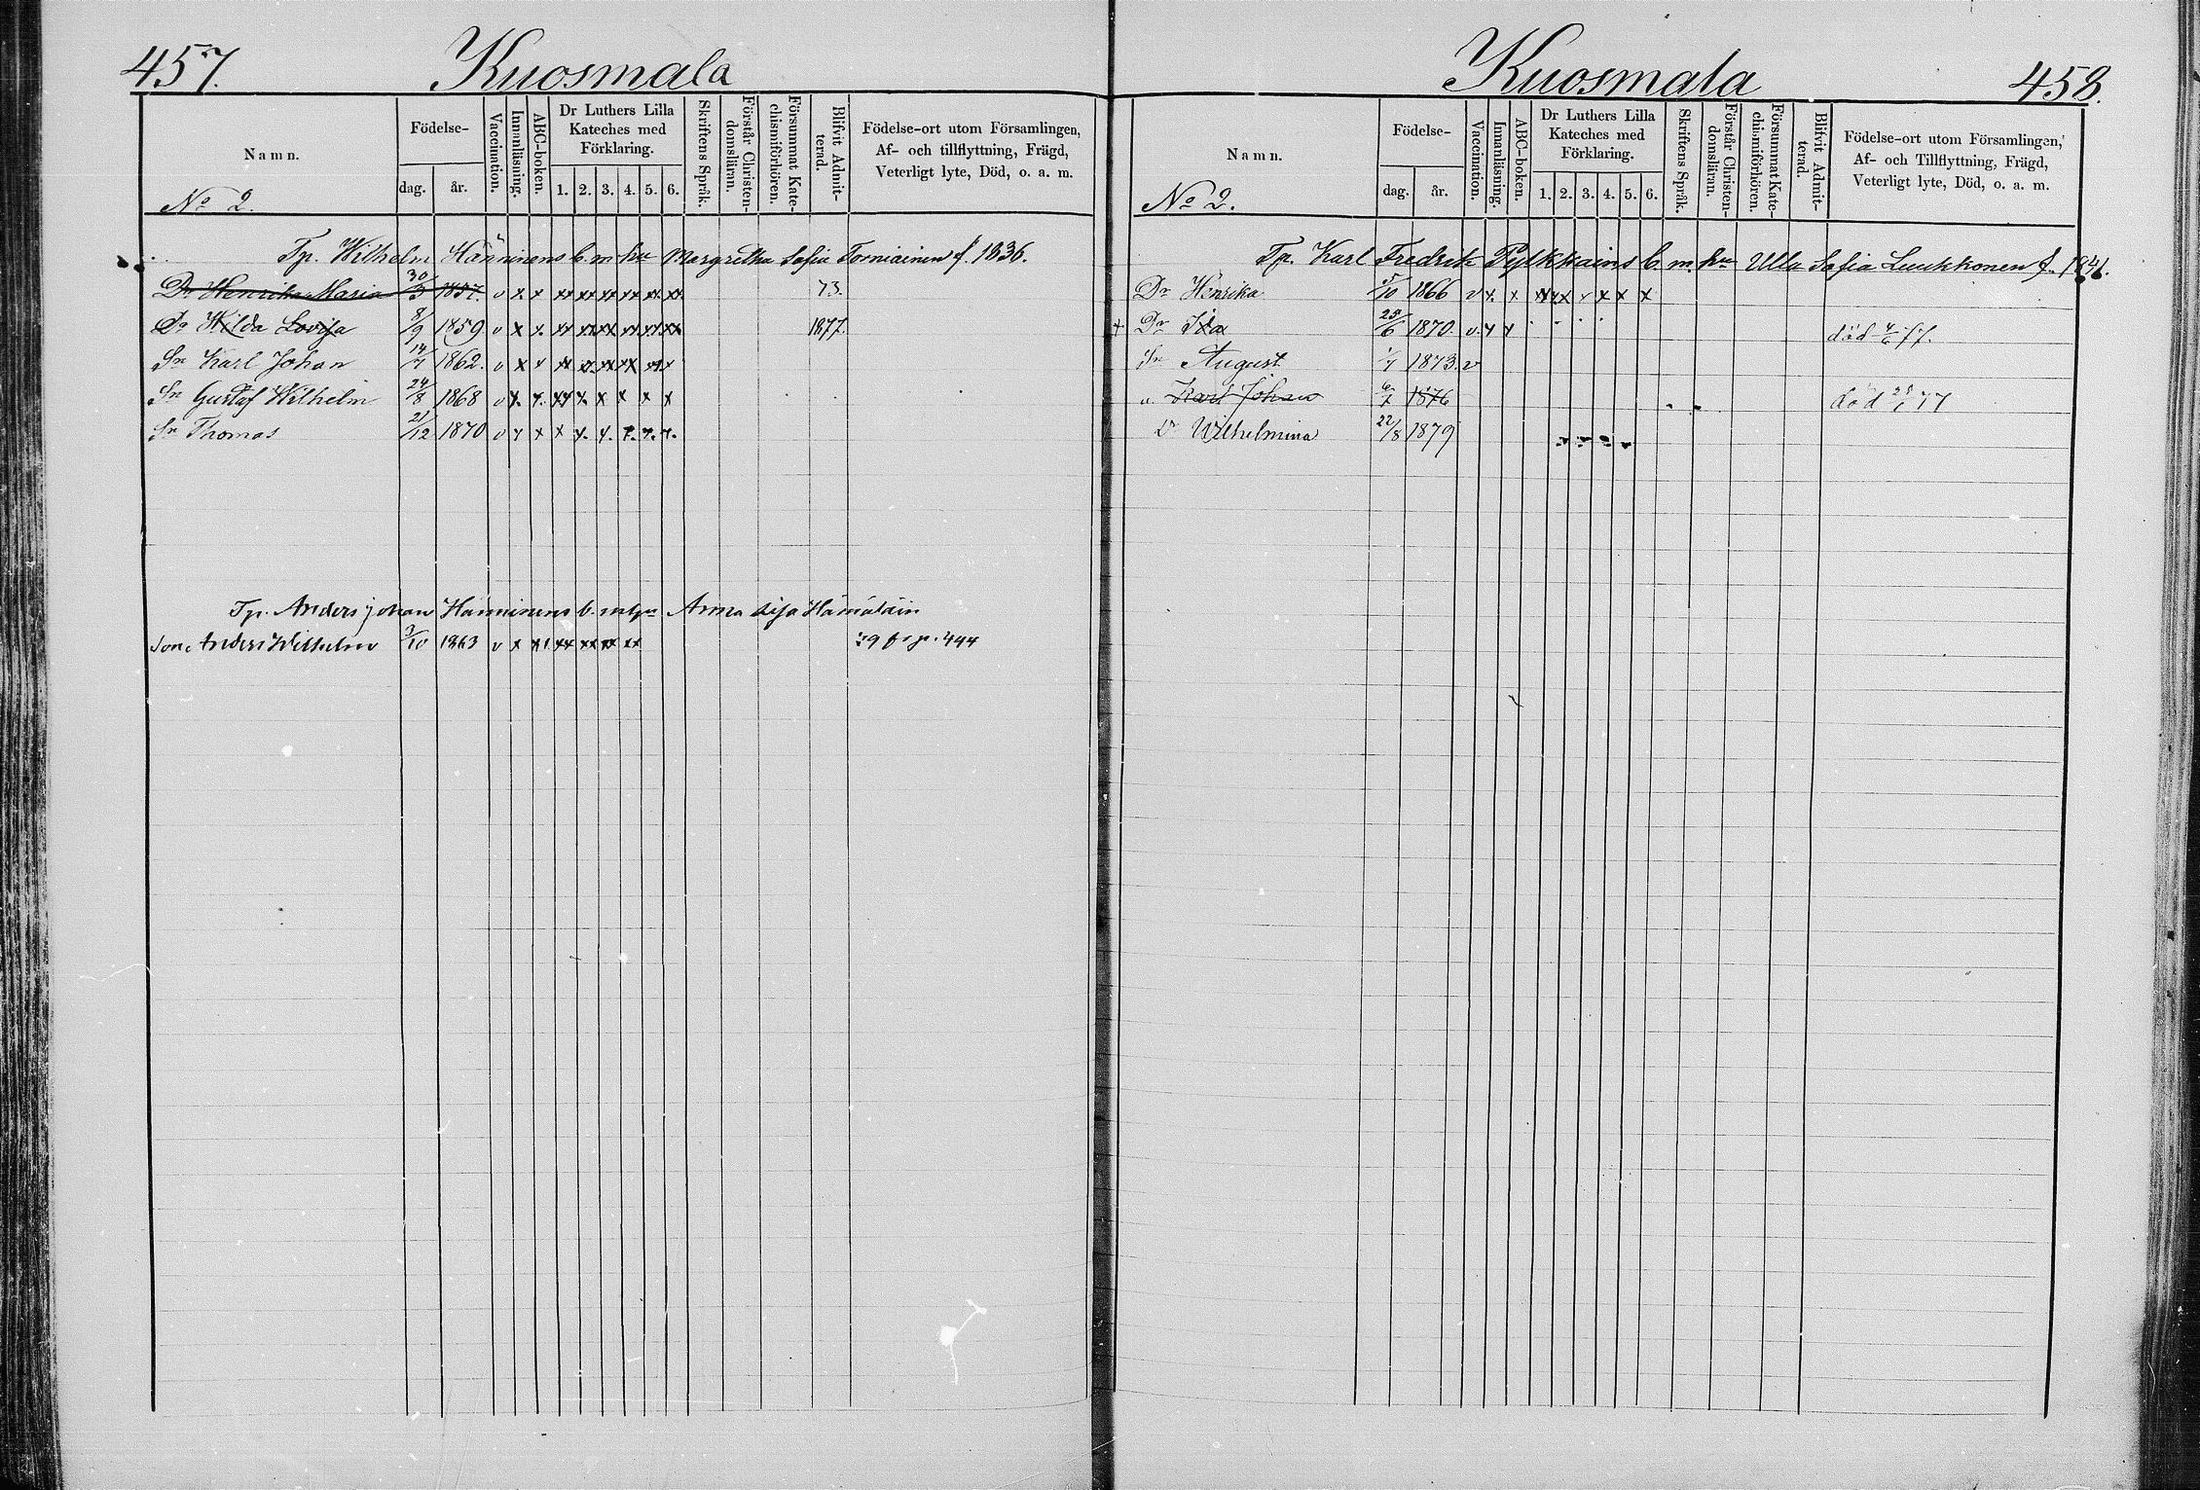 457.
Kuosmala
Namn.
No 2.
Födelse-
dag.
år.
Vaccination.
Innanläsning.
ABC-boken.
Dr Luthers Lilla
Kateches med
Förklaring.
1. 2. 3. 4. 5. 6.
Skriftens Språk.
Förstår Christen-
domsläran.
Försummat Kate-
chismiförhören.
Blifvit Admit-
terad.
Födelse-ort utom Församlingen,
Af- och tillflyttning, Frägd,
Veterligt lyte, Död, o. a. m.
Tp. Wilhelm Hänninens b. m. hu Margretha Sofia Torniainen f. 1836.
Dr Henrika Maria 30/3 1857. v x x xx xx xx xx xx xx 73.
Dr Hilda Lovisa 8/9 1859 v x x xx xx xx xx xx xx 1877.
Sn Karl Johan 14/7 1862. v x x xx x xx xx xx x
Sn Gustaf Wilhelm 24/8 1868 v x x xx x x x x x
Sn Thomas 21/12 1870 v x x x x x x x x
Tp. Anders Johan Hänninens b. m hu Anna Lisa
Son Anders Wilhelm 3/10 1863 v x xx xx xx xx xx p. 444
458.
Kuosmala
Namn.
No 2.
Födelse-
dag.
år.
Vaccination.
Innanläsning.
ABC-boken.
Dr Luthers Lilla
Kateches med
Förklaring.
1. 2. 3. 4. 5. 6.
Skriftens Språk.
Förstår Christen-
domsläran.
Försummat Kate-
chismiförhören.
Blifvit Admit-
terad.
Födelse-ort utom Församlingen,
Af- och Tillflyttning, Frägd,
Veterligt lyte, Död, o. a. m.
Tp. Karl Fredrik Pylkkäins b. m. hu Ulla Sofia Luukkonen f. 1841.
Dr Henrika 5/10 1866 v x x xx x x x x x
+ Dr Ida 25/6 1870. v x x död
Sn August 1/7 1873. v
" Karl Johan 1876 död 77
Dr Wilhelmina 22/8 1879